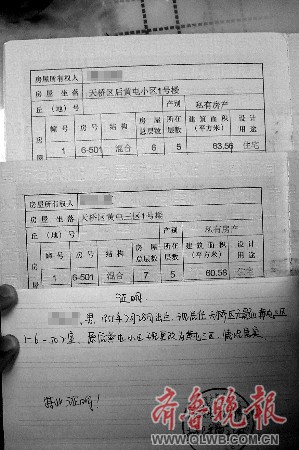 房屋所有权人
房屋 坐落 天桥区后黄屯小区1号楼
丘（地）号 产别 私有房产
幢号 房号 结构 房屋总层数 所在层数 建筑面积（平方米） 设计用途
1 6-501 混合 6 5 63.56 住宅
房屋所有权人
房屋 坐落 天桥区黄屯三区1号楼
丘（地）号 产别 私有房产
幢号 房号 结构 房屋总层数 所在层数 建筑面积（平方米） 设计用途
1 6-501 混合 7 5 60.58 住宅
证明
男，195 年2月28日出生，现居住 天桥区 黄屯三区
1-6-502室， 黄屯小区 现更改为黄屯三区，情况属实
特此证明！
齐鲁晚报
WWW.QLWB.COM.CN